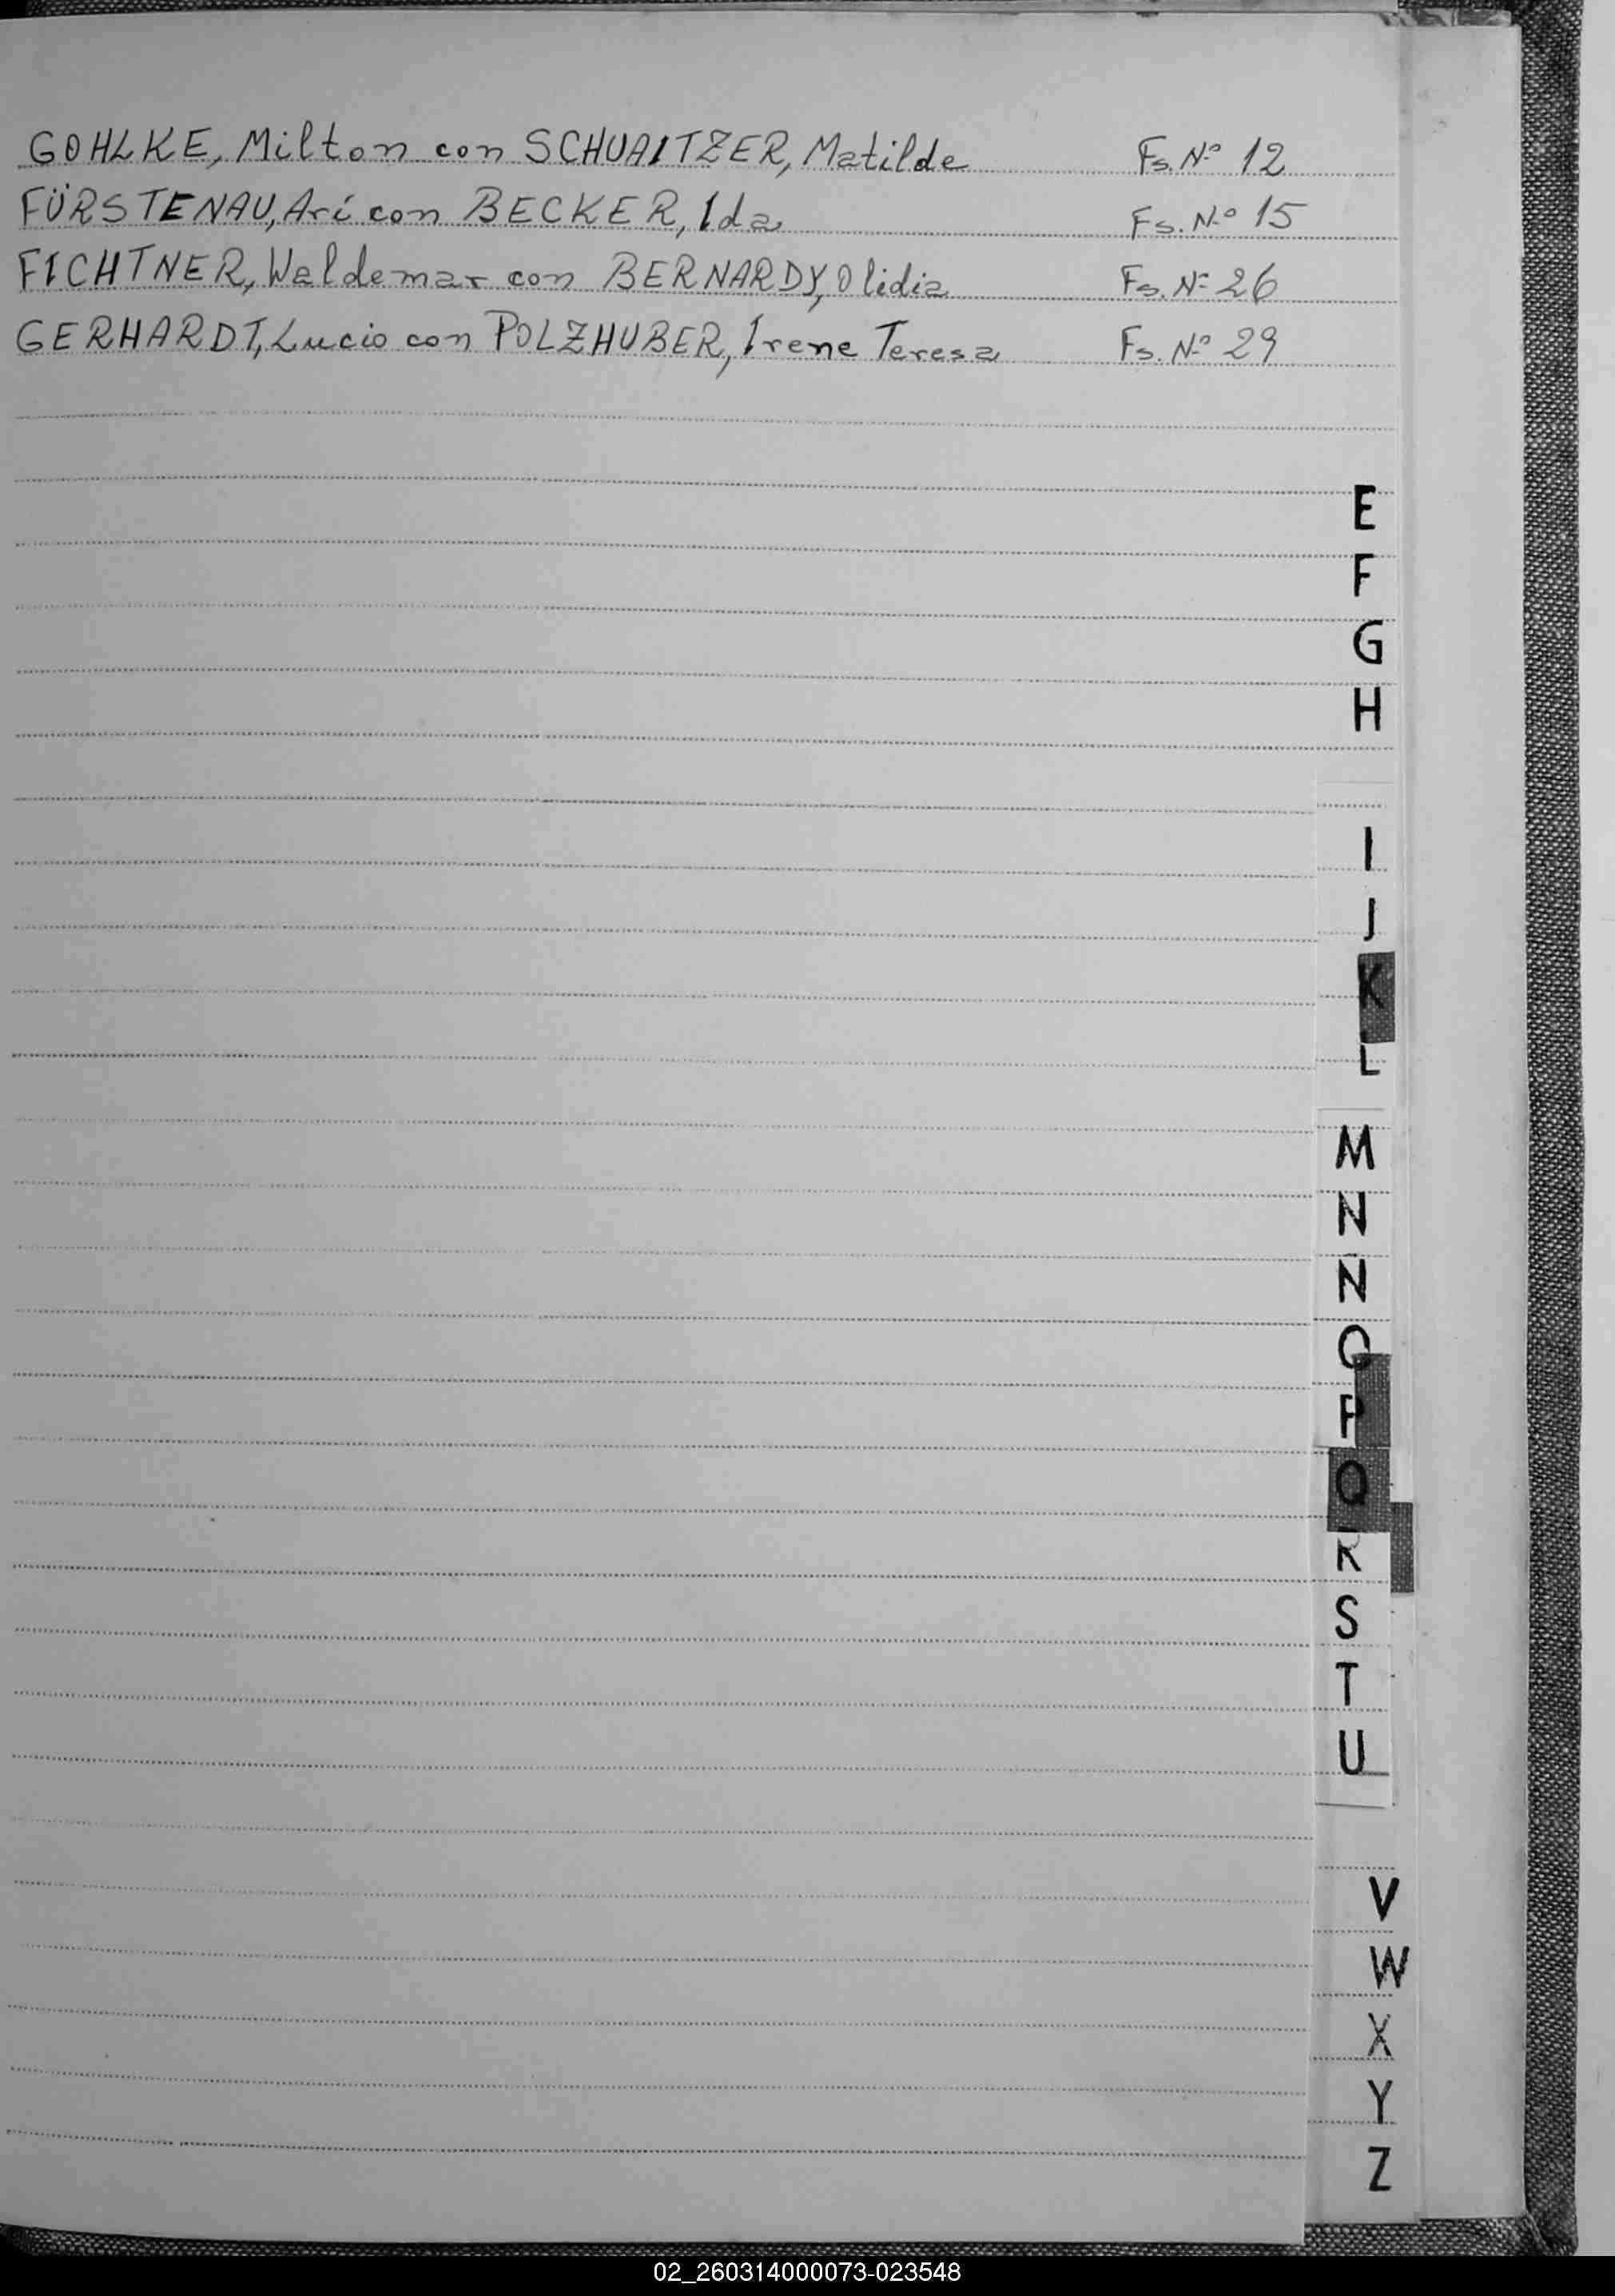 GOHLKE, Milton con SCHUAITZER, Matilde Fs. Nº 12
FÜRSTENAU, Arí con BECKER, Ida Fs. Nº 15
FICHTNER, Waldemar con BERNARDY, Olidia Fs. Nº 26
GERHARDT, Lucio con POLZHUBER, Irene Teresa Fs. Nº 29
E
F
G
H
I
J
K
L
M
N
Ñ
O
P
Q
R
S
T
U
V
W
X
Y
Z
02_260314000073-023548